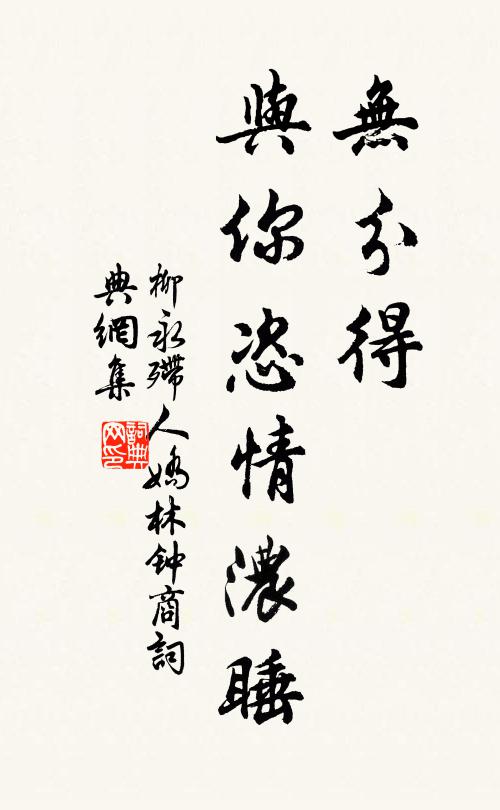 無分得
與你恣情濃睡
柳永殢人嬌林钟商詞
典網集
詞典網印